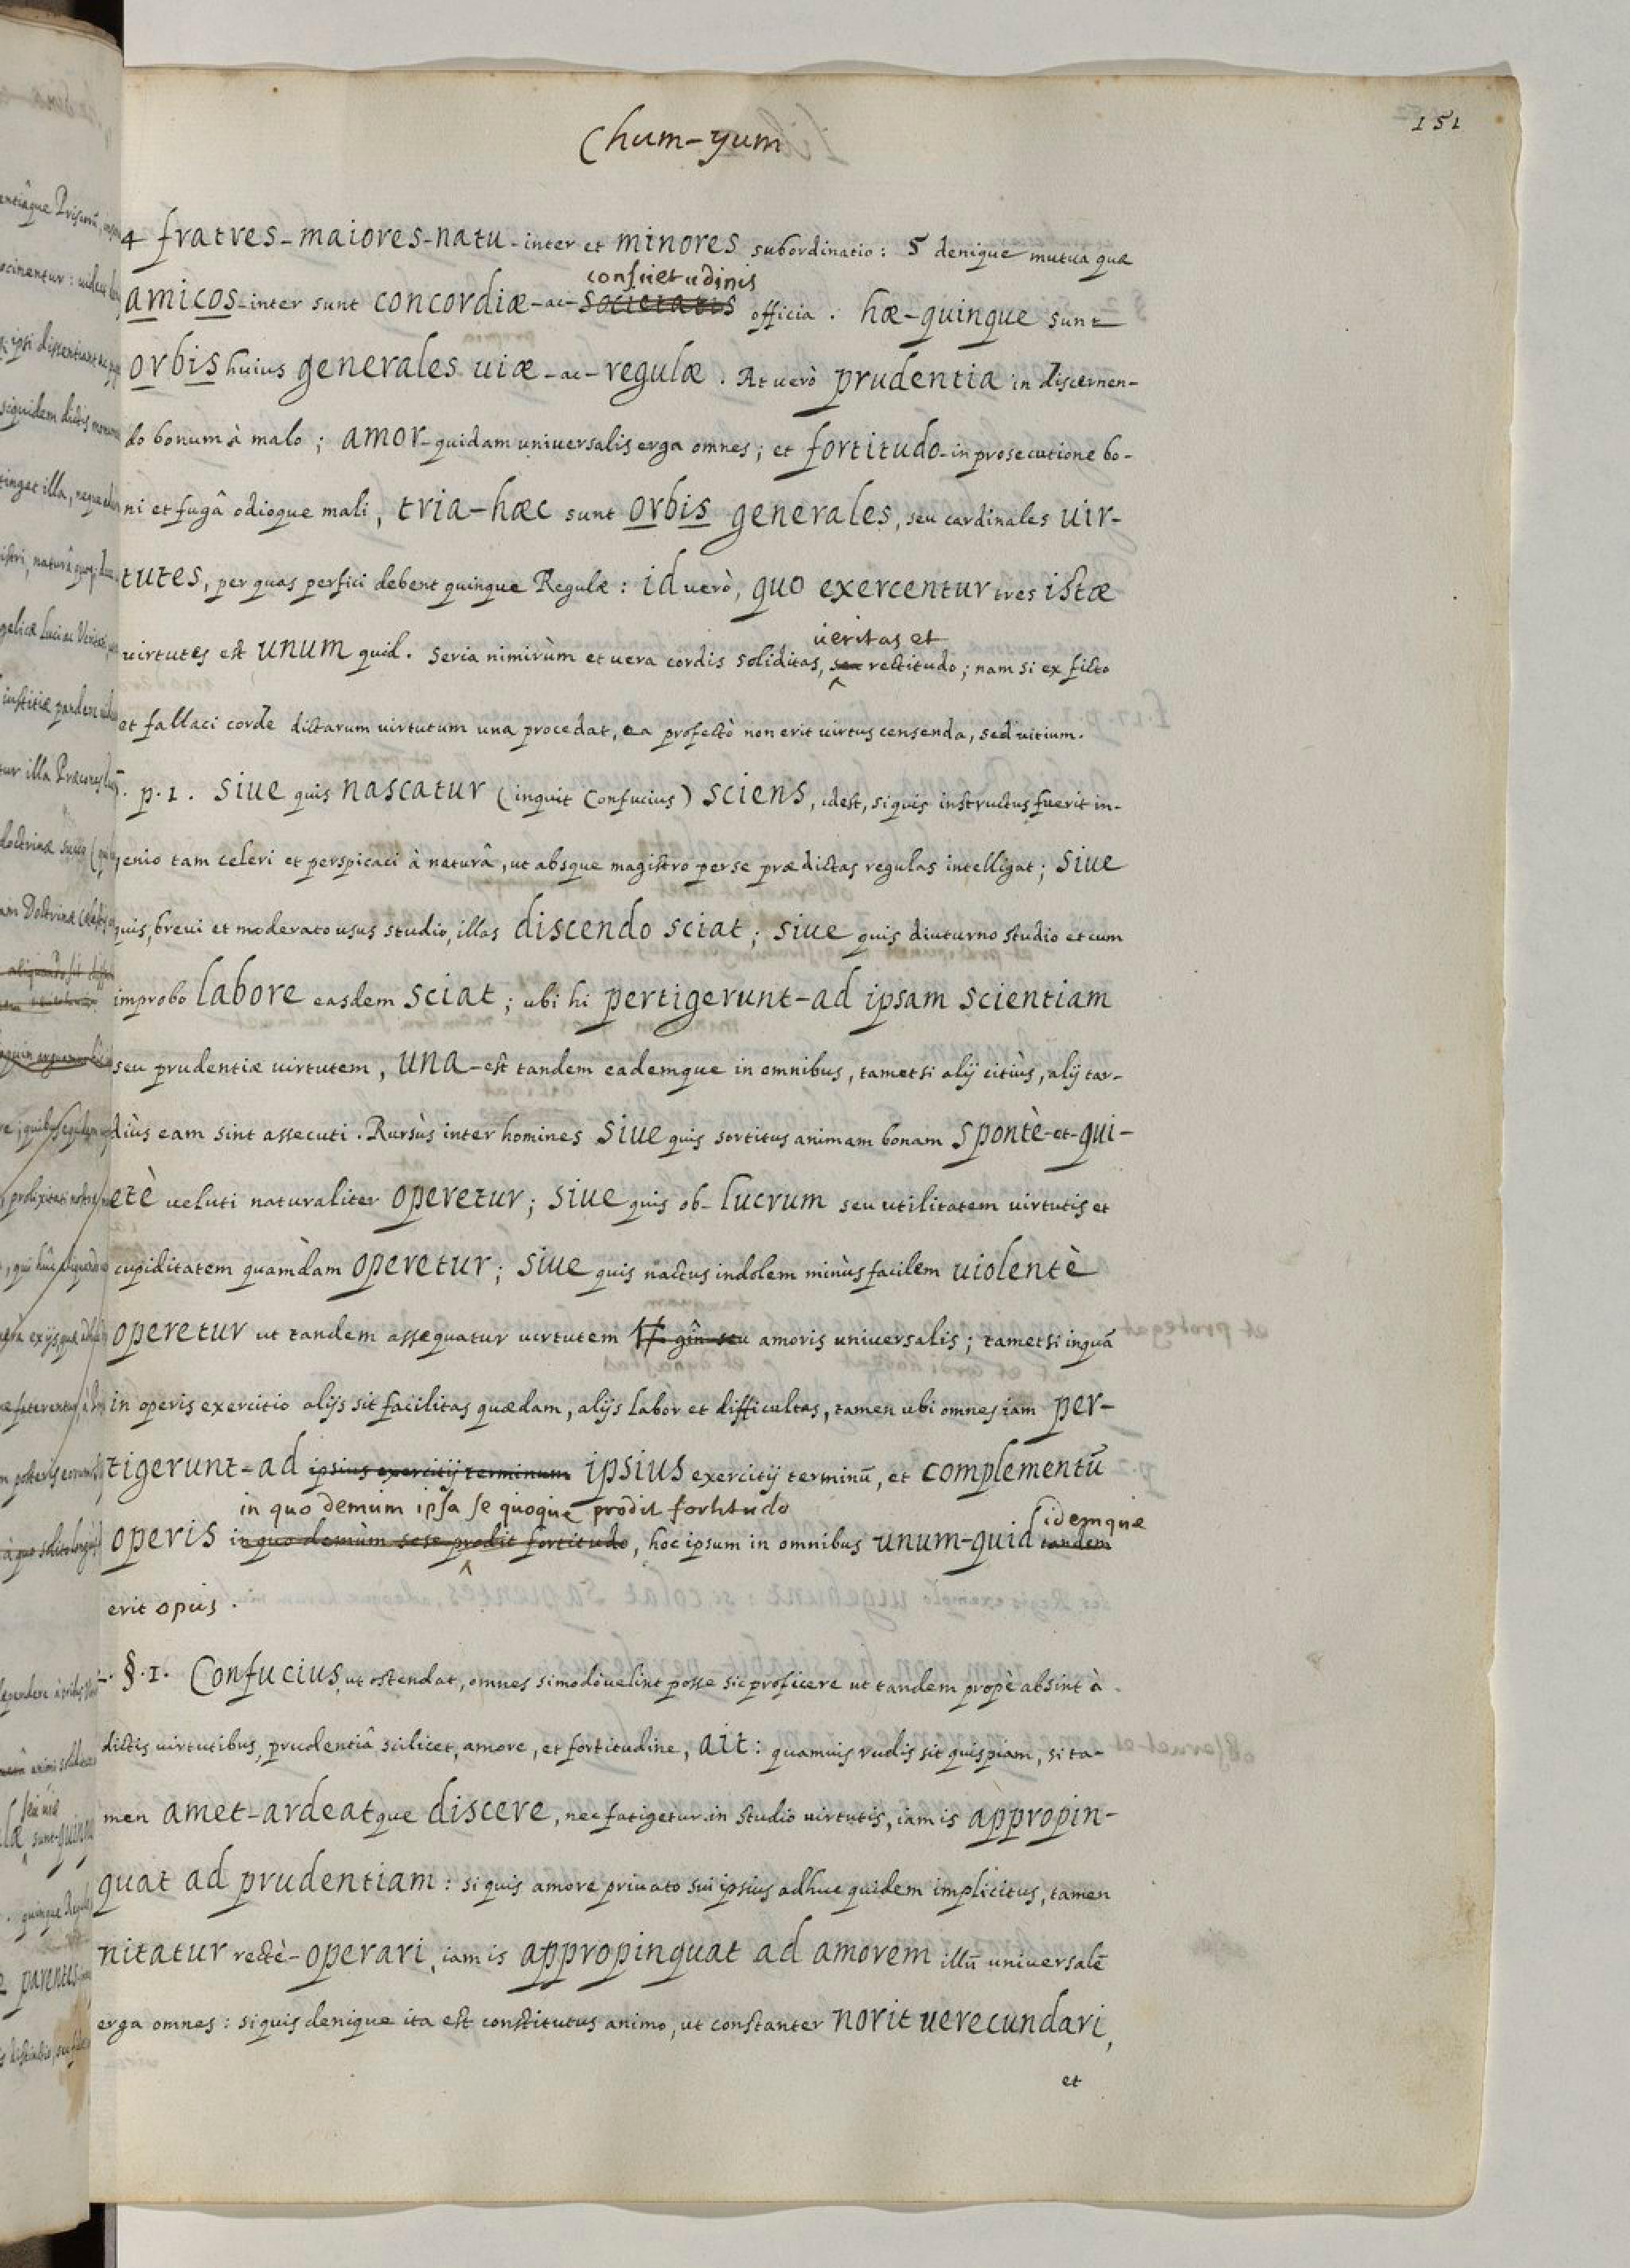 Chum-yum
151
4 fratres-maiores-natu-inter et minores subordinatio: 5 denique mutua quæ
consuetudinis
amicos-inter sunt concordiæ-ac-societatis officia. hæ-quinque sunt
orbis huius generales uiæ-ac-regulæ. At uerò prudentia in discernen-
do bonum à malo; amor-quidam uniuersalis erga omnes; et fortitudo-in prosecutione bo-
ni et fugâ odioque mali, tria-hæc sunt orbis generales, seu cardinales uir-
tutes, per quas perfici debent quinque Regulæ: id uerò, quo exercentur tres istæ
ueritas et
uirtutes est unum quid. seria nimirùm et uera cordis soliditas, seu rectitudo; nam si ex ficto
et fallaci corde dictarum uirtutum una procedat, ea profectò non erit uirtus censenda, sed uitium.
p.1. siue quis nascatur (inquit Confucius) sciens, idest, siquis instructus fuerit in-
genio tam celeri et perspicaci à naturâ, ut absque magistro per se prædictas regulas intelligat; siue
quis, breui et moderato usus studio, illas discendo sciat; siue quis diuturno studio et cum
improbo labore easdem sciat; ubi hi pertigerunt-ad ipsam scientiam
seu prudentiæ uirtutem, una-est tandem eademque in omnibus, tametsi alij citiùs, alij tar-
diùs eam sint assecuti. Rursùs inter homines siue quis sortitus animam bonam spontè-et-qui-
etè ueluti naturaliter operetur; siue quis ob-lucrum seu utilitatem uirtutis et
cupiditatem quamdam operetur; siue quis nactus indolem minùs facilem uiolentè
operetur ut tandem assequatur uirtutem gîn seu amoris uniuersalis; tametsi inquã
in operis exercitio alijs sit facilitas quædam, alijs labor et difficultas, tamen ubi omnes iam per-
tigerunt-ad ipsius exercitij terminum ipsius exercitij terminũ, et complementũ
in quo demum ipsa se quoque prodit fortitudo
idemque
operis in quo demùm sese prodit fortitudo, hoc ipsum in omnibus unum-quid tandem
erit opus.
§.1. Confucius, ut ostendat, omnes si modò uelint posse sic proficere ut tandem propè absint à
dictis uirtutibus, prudentiâ scilicet, amore, et fortitudine, ait: quamuis rudis sit quispiam, si ta-
men amet-ardeatque discere, nec fatigetur in studio uirtutis, iam is appropin-
quat ad prudentiam: si quis amore priuato sui ipsius adhuc quidem implicitus, tamen
nitatur rectè-operari, iam is appropinquat ad amorem illũ uniuersalẽ
erga omnes: siquis denique ita est constitutus animo, ut constanter norit uerecundari,
et